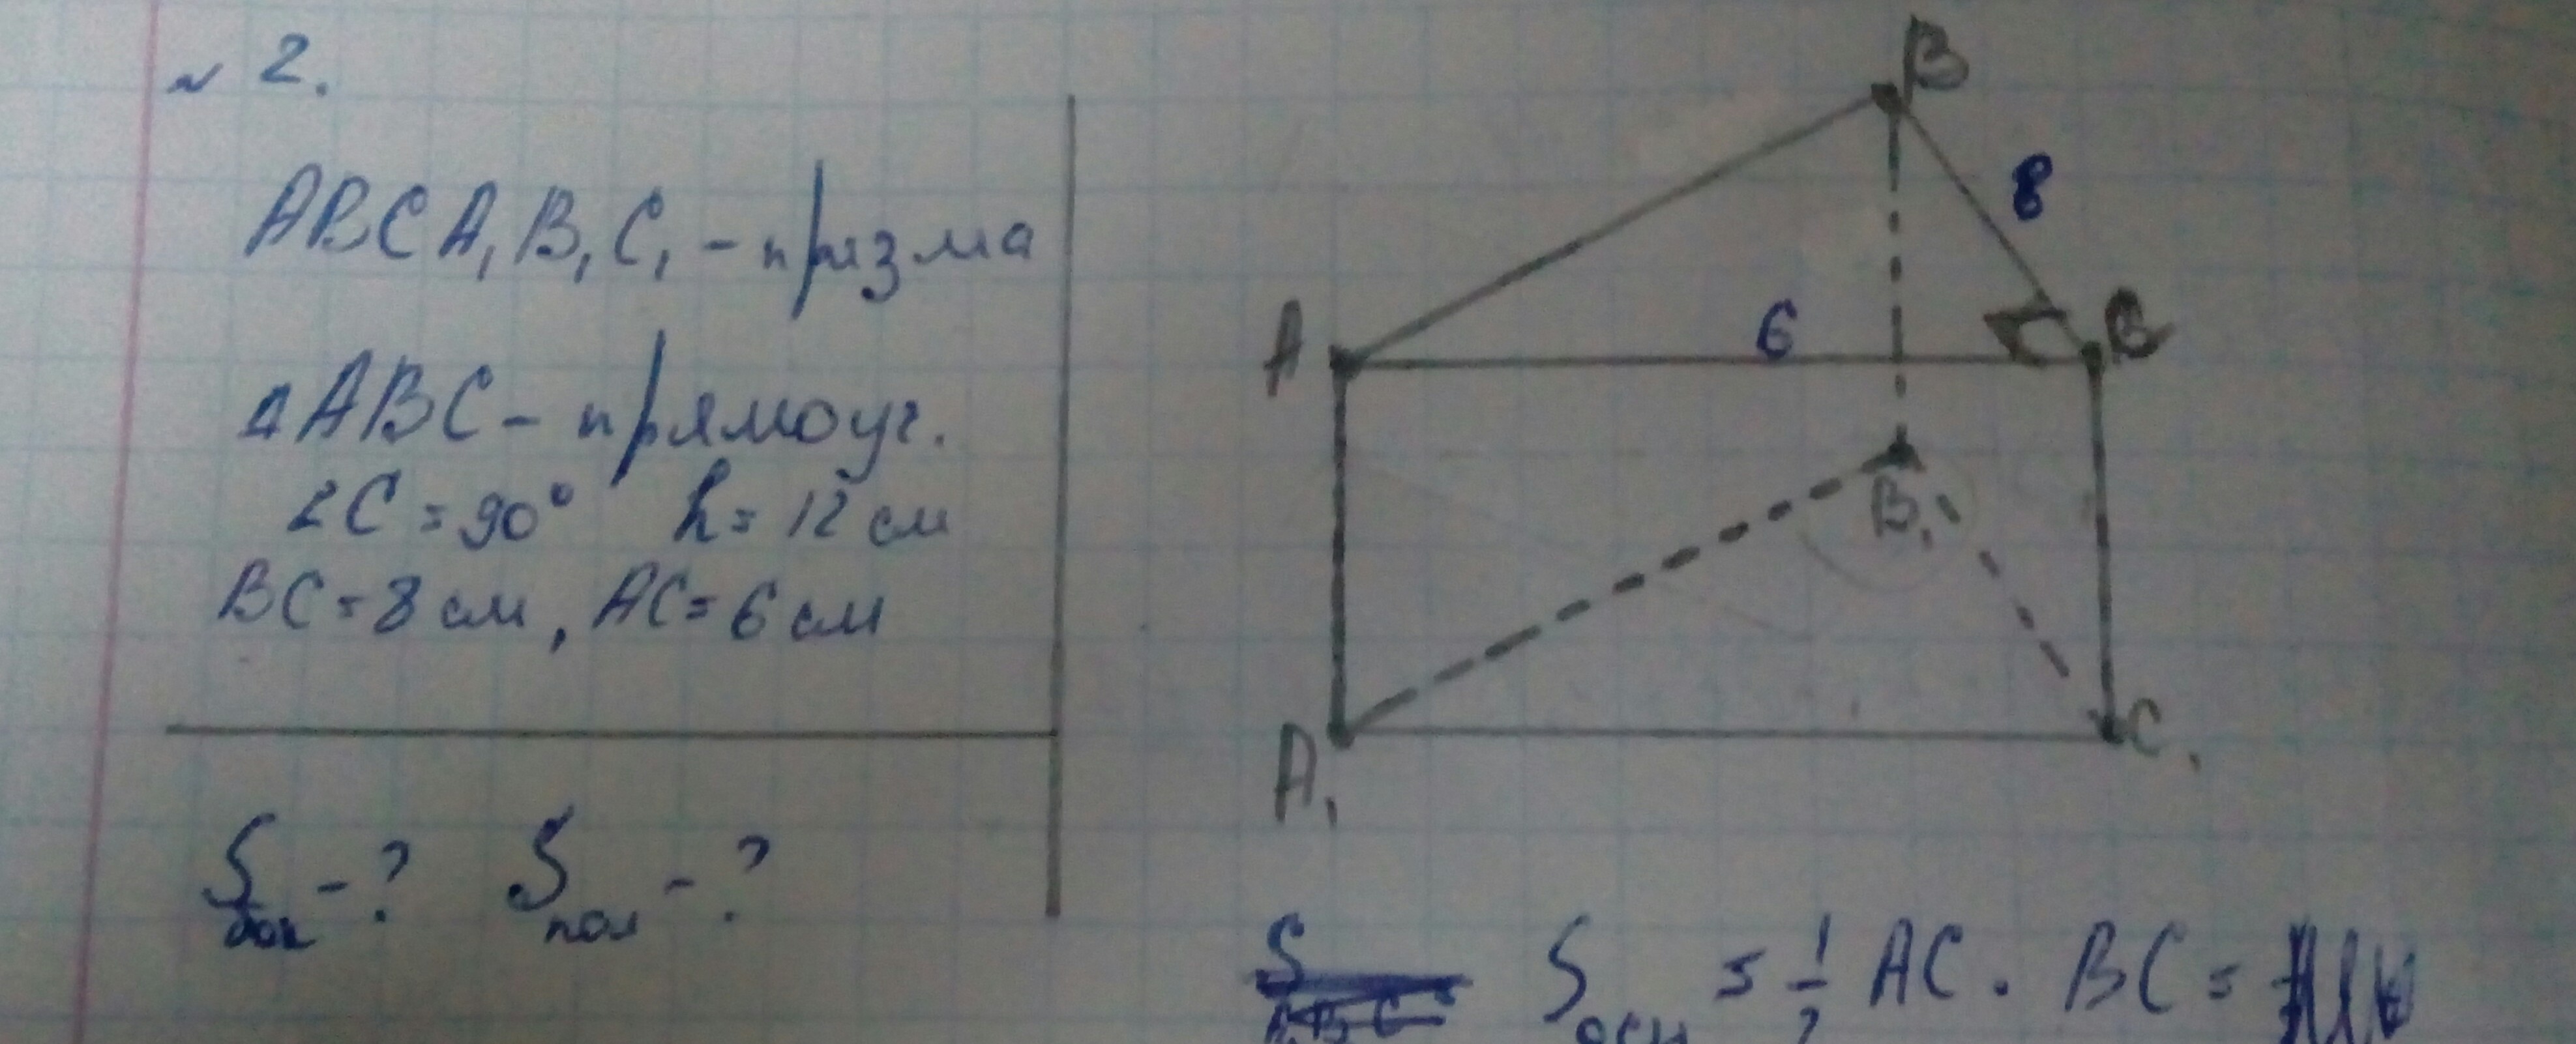 № 2.
ABCA₁B₁C₁ - призма
△ABC - прямоуг.
∠C = 90° h = 12 см
BC = 8 см, AC = 6 см
Sбок - ? Sпол - ?
B
8
A
6
B₁
A₁
C₁
S
Sосн = 1/2 AC · BC =